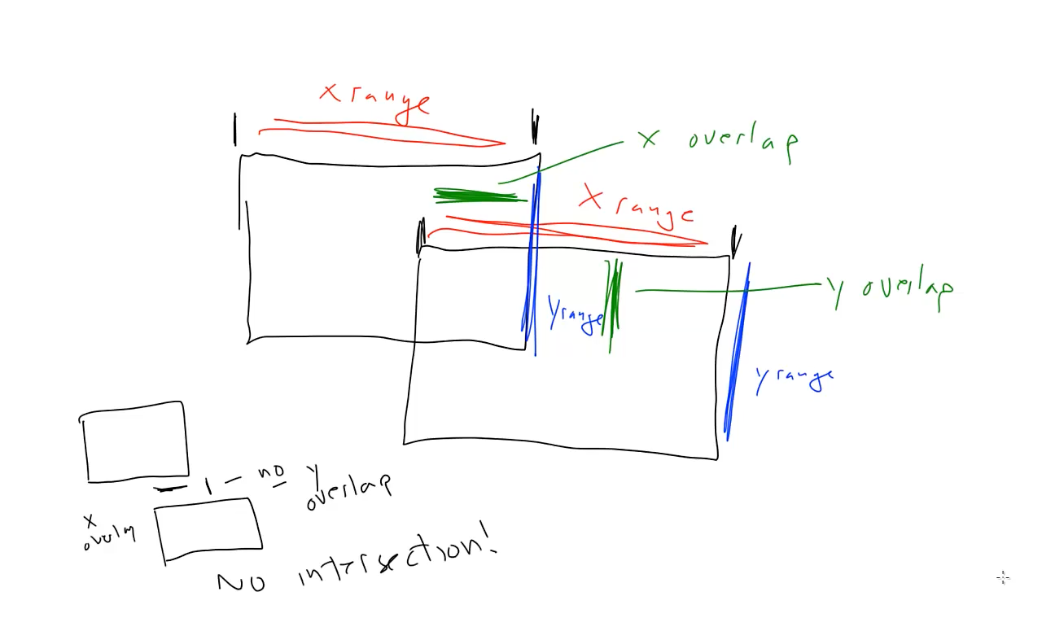 x range
x overlap
x range
y range
y overlap
y range
no y
overlap
x
No intersection!